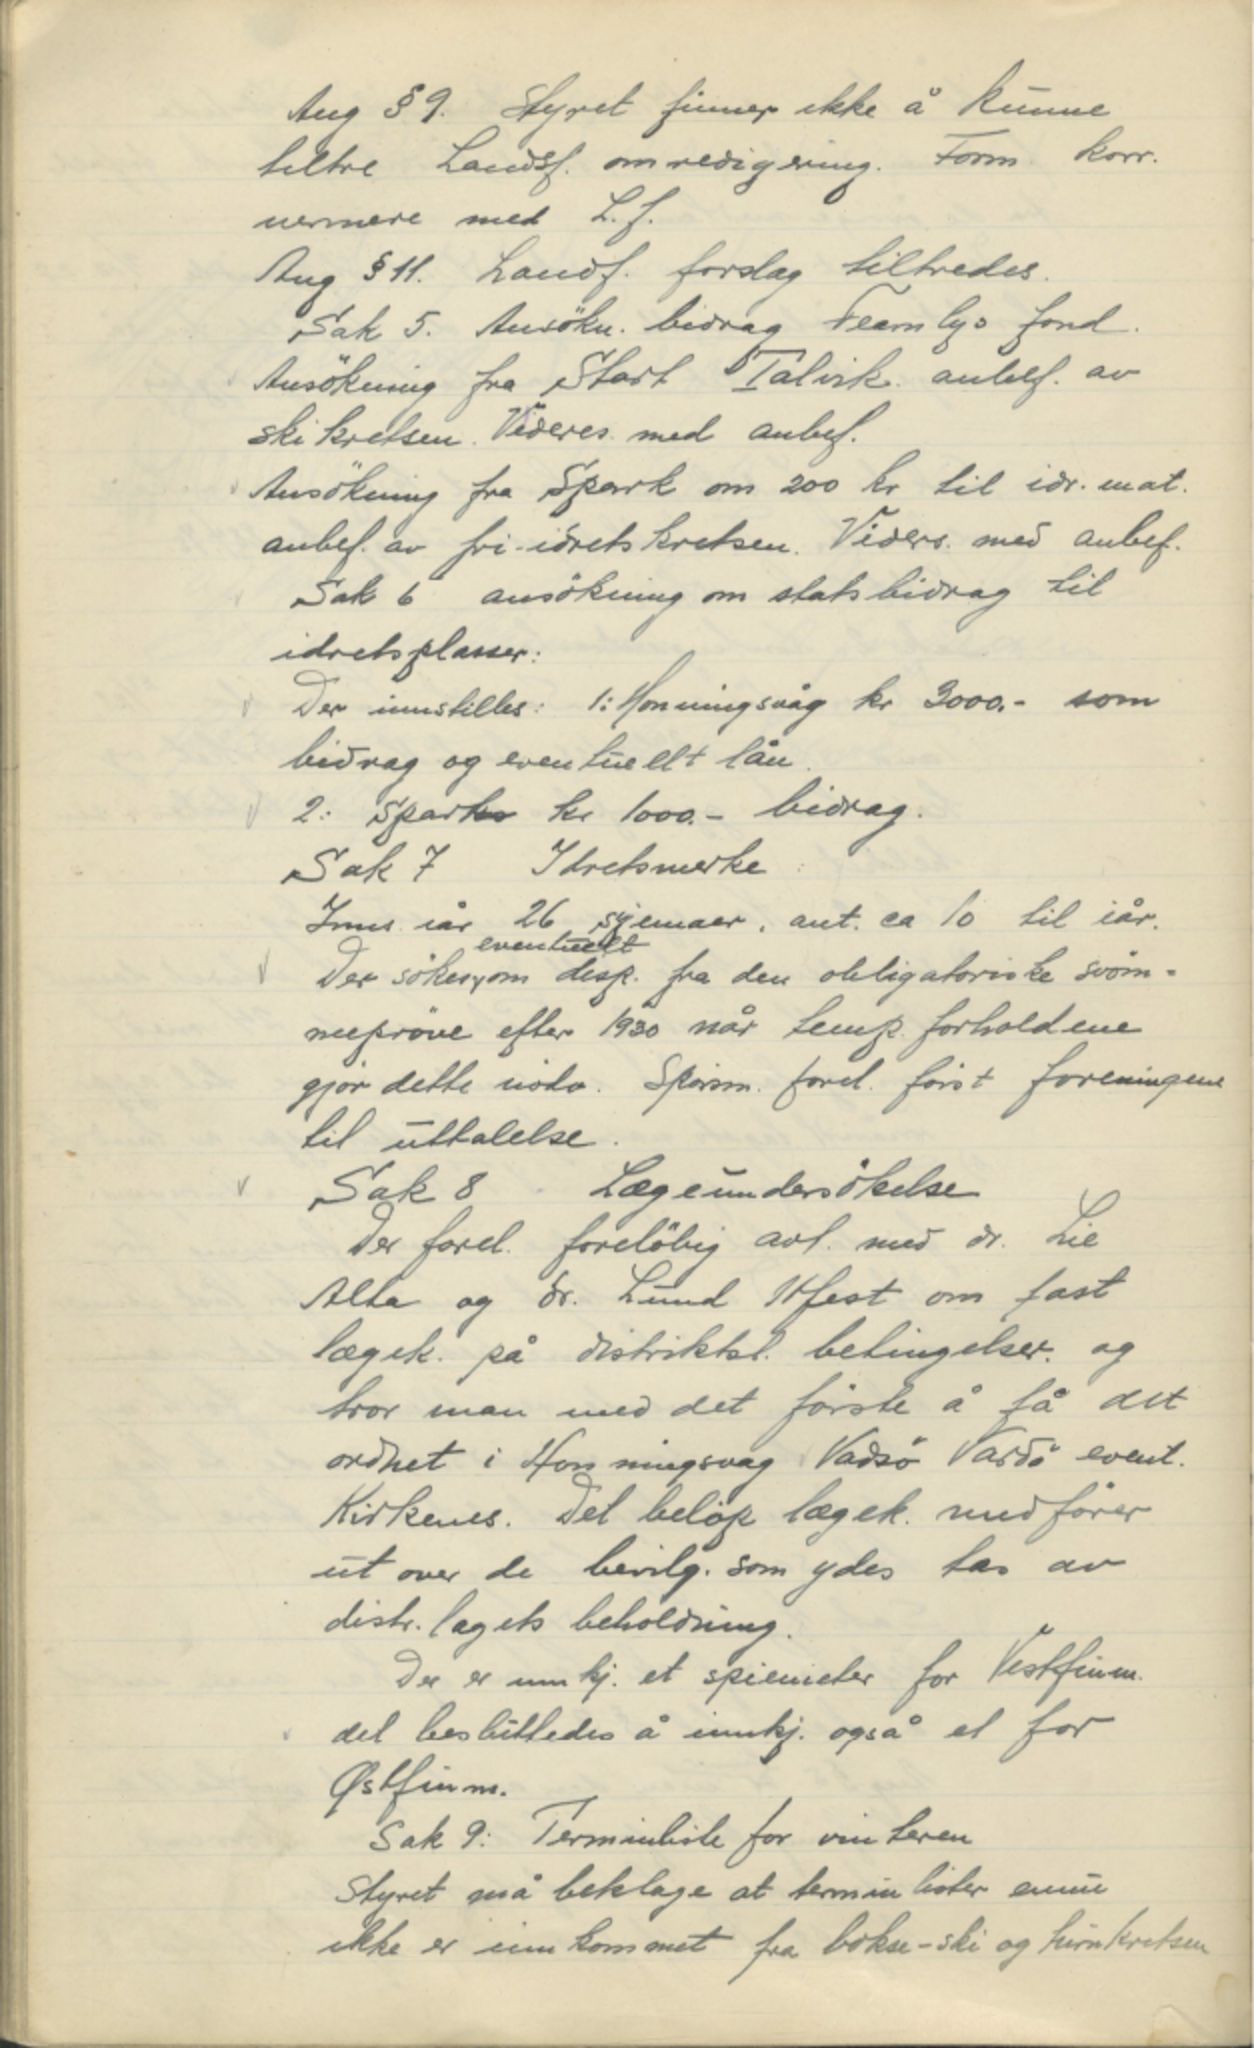 Ang § 9. Styret finner ikke å kunne
tiltre Landsf. omredigering. Form. korr.
nermere med L.f.
Ang § 11. Landsf. forslag tiltredes.
Sak 5. Ansökn. bidrag Fearnlys fond.
Ansökning fra Start Talvik anbef. av
skikretsen. Videres med anbef.
Ansökning fra Spark om 200 kr til idr. mat.
anbef. av fri-idretskretsen. Viders. med anbef.
Sak 6 ansökning om statsbidrag til
idretsplasser:
Der innstilles: 1: Honningsvåg kr 3000.- som
bidrag og eventuellt lån.
2: Spark kr 1000.- bidrag.
Sak 7 Idretsmerke
Inns. iår 26 skjemaer, ant. ca 10 til iår.
eventuelt
Der sökes om disp. fra den obligatoriske svöm-
meprøve efter 1930 når temp. forholdene
gjör dette nödv. Spörsm. forel. först foreningene
til uttalelse.
Sak 8 Lægeundersökelse
Der forel. forelöbig avt. med dr. Lie
Alta og dr. Lund Hfest om fast
lægek. på distriktsl. betingelser. og
tror man med det förste å få det
ordnet i Honningsvag Vadsö Vardö event.
Kirkenes. Det belöp lægek. medförer
ut over de bevilg. som ydes tas av
distr. lagets beholdning.
Der er innkj. et spirometer for Vestfinm.
det besluttedes å innkj. også et for
Østfinm.
Sak 9: Terminliste for vinteren
Styret må beklage at terminlister ennu
ikke er innkommet fra bokse-ski og turnkretsen